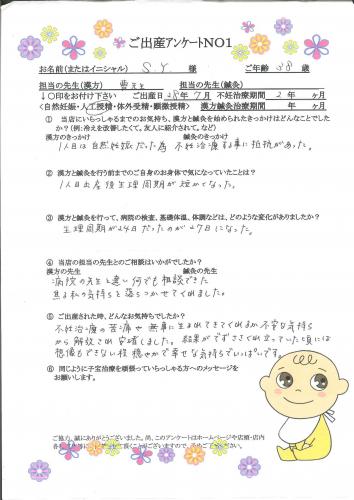 ご出産アンケートNO1
お名前(またはイニシャル) S.Y. 様 ご年齢 38 歳
担当の先生(漢方) 担当の先生(鍼灸)
↓○印をお付け下さい ご出産日 28年 7月 不妊治療期間 2 年 ヶ月
<自然妊娠・人工授精・体外受精・顕微授精> 漢方鍼灸治療期間 年 ヶ月
① 当店にいらっしゃるまでのお気持ち、漢方と鍼灸を始められたきっかけはどんなことでしたか?(例:冷えを改善したくて。友人に紹介されて。など)
漢方のきっかけ 鍼灸のきっかけ
1人目は自然妊娠だった為 不妊治療する事に抵抗があった。
② 漢方と鍼灸を行う前までのご自身のお身体で気になっていたことは?
1人目出産後生理周期が短かくなった。
③ 漢方と鍼灸を行って、病院の検査、基礎体温、体調などは、どのような変化がありましたか?
生理周期が24日だったのが27日になった。
④ 当店の担当の先生とのご相談はいかがでしたか?
漢方の先生 鍼灸の先生
病院の先生と違い何でも相談できた
焦る私の気持ちを落ちつかせてくれました。
⑤ ご出産された時、どんなお気持ちでしたか?
不妊治療の苦痛や無事に生まれてきてくれるか不安な気持ち
から解放され安堵しました。結果がでずさきくれ立っていた頃には
想像もできない程穏やかで幸せな気持ちでいっぱいです。
⑥ 同じように子宝治療を頑張っていらっしゃる方へのメッセージを
お願いします。
ご協力、誠にありがとうございました。尚、このアンケートはホームページや店頭・店内